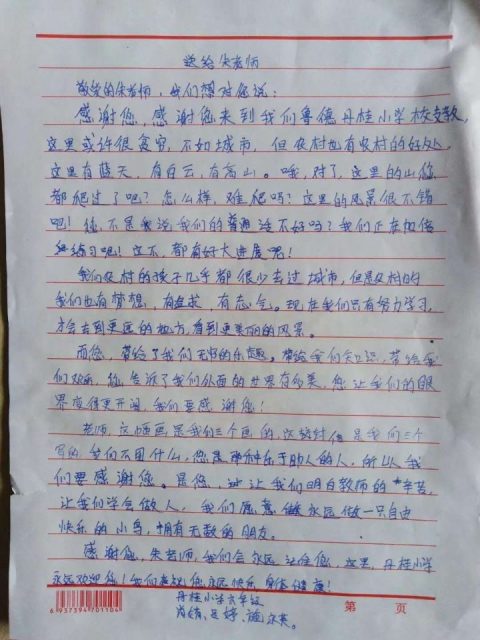 送给朱老师
敬爱的朱老师，我们想对您说：
感谢您，感谢您来到我们粤德丹桂小学校支教，
这里或许很贫穷，不如城市，但农村也有农村的好处，
这里有蓝天，有白云，有高山。哦，对了，这里的山您
都爬过了吧？怎么样，难爬吗？这里的风景很不错
吧！您不是我说我们的普通话不好吗？我们正在加倍
练习吧！这不，都有好大进展呢！
我们农村的孩子几乎都很少去过城市，但是农村的
我们也有梦想，有追求，有志气。现在我们只有努力学习，
才会去到更远的地方，看到更美丽的风景。
而您，带给了我们无穷的乐趣。带给我们知识，带给我
们欢乐，您告诉了我们外面的世界有多美，您让我们的眼
界变得更开阔，我们要感谢您！
老师，这幅画是我们三个画的，是我们三个
写的，什么，您是那种乐于助人的人，所以我
们要感谢您。是您，让我们明白教师的辛苦，
让我们学会做人，我们愿意永远做一只自由
快乐的小鸟，拥有无数的朋友。
感谢您，朱老师，我们会永远记住您，这里，丹桂小学
永远欢迎您！我们祝您永远快乐，身体健康！
丹桂小学六年级
6937394701104 第 页